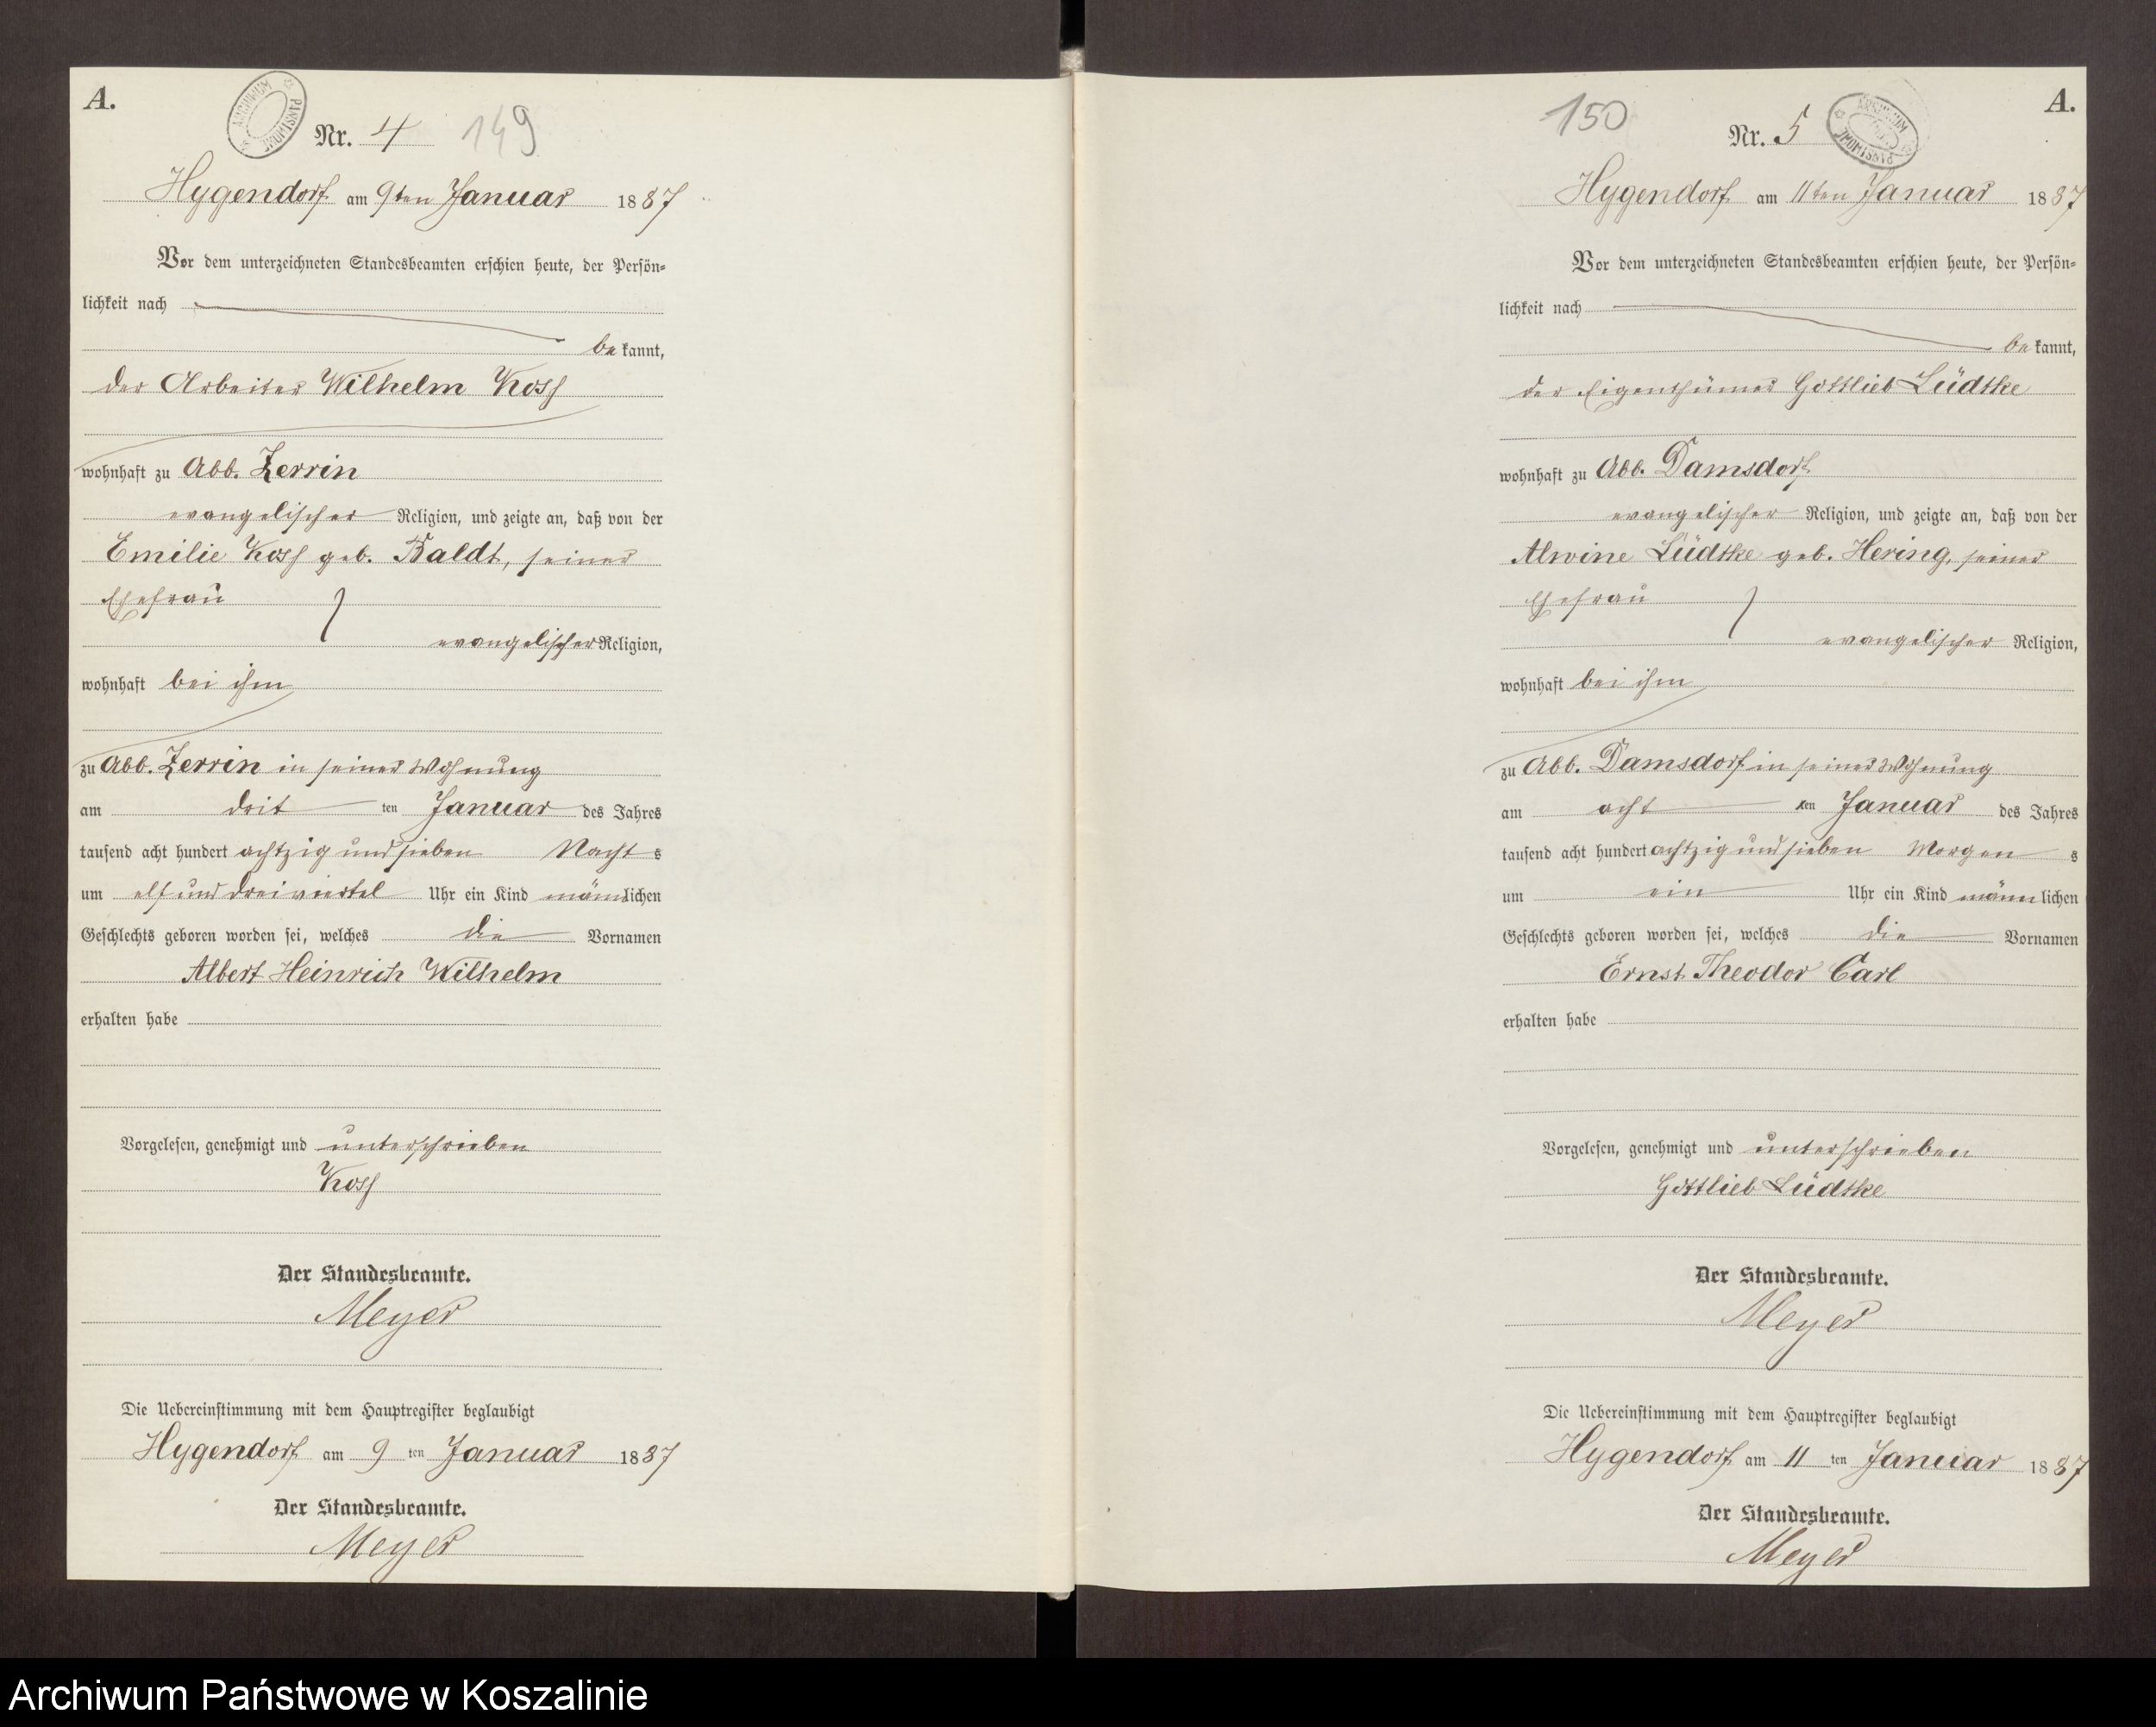 A.
ARCHIWUM PAŃSTWOWE
Nr. 4 149
Hygendorf am 9ten Januar 1887
Vor dem unterzeichneten Standesbeamten erschien heute, der Persön-
lichkeit nach
bekannt,
der Arbeiter Wilhelm Koss
wohnhaft zu Abb. Zerrin
evangelischer Religion, und zeigte an, daß von der
Emilie Koss geb. Baldt, seiner
Ehefrau
evangelischer Religion,
wohnhaft bei ihm
zu Abb. Zerrin in seiner Wohnung
am drit ten Januar des Jahres
tausend acht hundert achtzig und sieben Nacht s
um elf und dreiviertel Uhr ein Kind männlichen
Geschlechts geboren worden sei, welches die Vornamen
Albert Heinrich Wilhelm
erhalten habe
Vorgelesen, genehmigt und unterschrieben
Koss
Der Standesbeamte.
Meyer
Die Uebereinstimmung mit dem Hauptregister beglaubigt
Hygendorf am 9 ten Januar 1887
Der Standesbeamte.
Meyer
A.
150
ARCHIWUM PAŃSTWOWE
Nr. 5
Hygendorf am 11ten Januar 1887
Vor dem unterzeichneten Standesbeamten erschien heute, der Persön-
lichkeit nach
bekannt,
der Eigenthümer Gottlieb Lüdtke
wohnhaft zu Abb. Damsdorf
evangelischer Religion, und zeigte an, daß von der
Alwine Lüdtke geb. Hering, seiner
Ehefrau
evangelischer Religion,
wohnhaft bei ihm
zu Abb. Damsdorf in seiner Wohnung
am acht ten Januar des Jahres
tausend acht hundert achtzig und sieben Morgen s
um ein Uhr ein Kind männlichen
Geschlechts geboren worden sei, welches die Vornamen
Ernst Theodor Carl
erhalten habe
Vorgelesen, genehmigt und unterschrieben
Gottlieb Lüdtke
Der Standesbeamte.
Meyer
Die Uebereinstimmung mit dem Hauptregister beglaubigt
Hygendorf am 11 ten Januar 1887
Der Standesbeamte.
Meyer
Archiwum Państwowe w Koszalinie